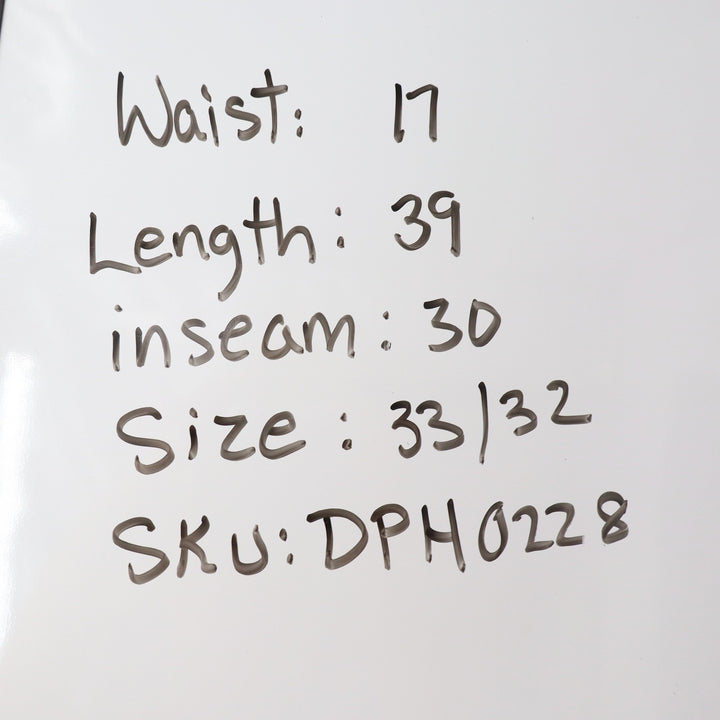 Waist: 17
Length: 39
inseam: 30
Size: 33/32
SKU: DPH0228